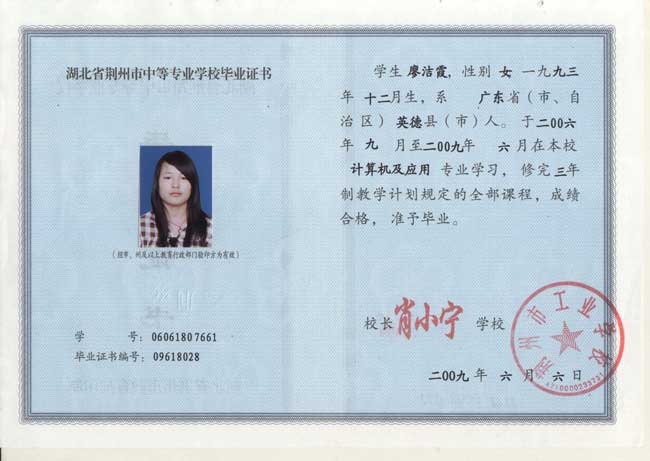 湖北省荆州市中等专业学校毕业证书
(经市、州及以上教育行政部门验印方为有效)
学 号: 06061807661
毕业证书编号: 09618028
学生 廖洁霞, 性别 女 一九九三
年 十二月生, 系 广东省(市、自
治区) 英德县(市)人。于二00六
年 九 月至二00九年 六月在本校
计算机及应用 专业学习, 修完三年
制教学计划规定的全部课程, 成绩
合格, 准予毕业。
校长 肖小宁 学校
荆州市工业学校
二00九 年 六 月 六 日